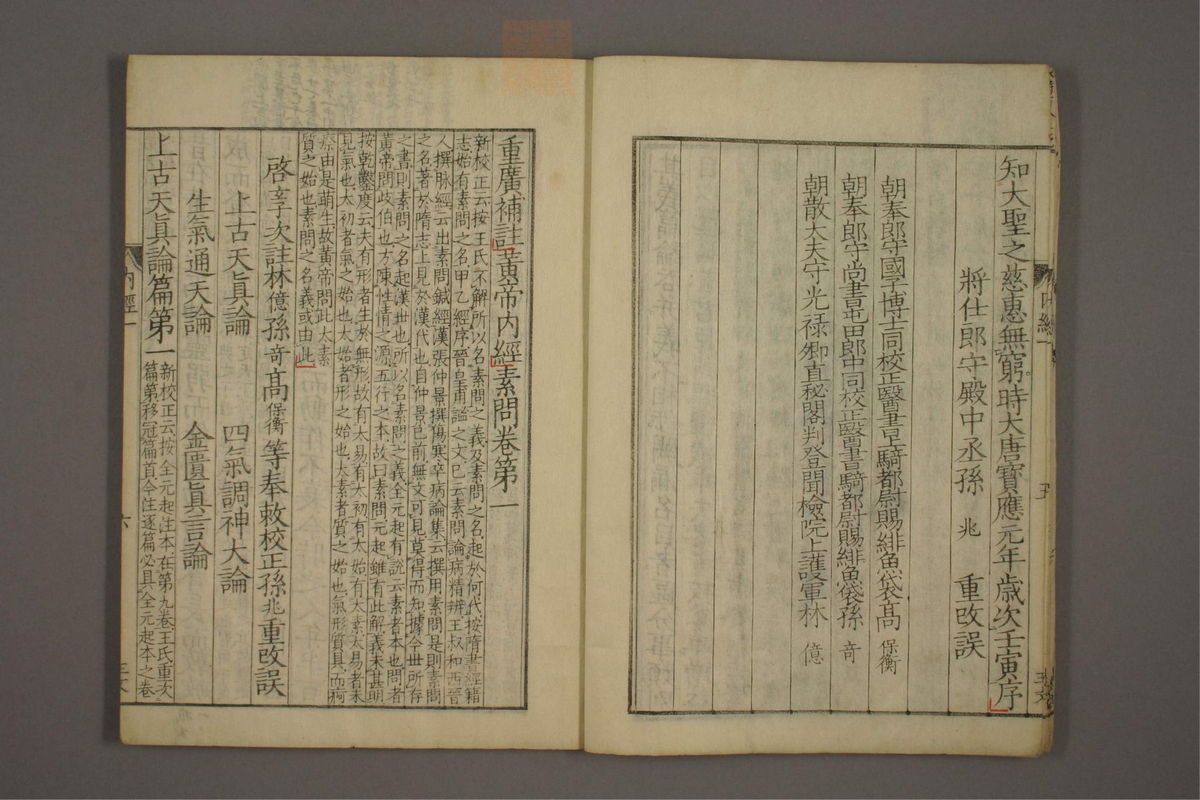 知大聖之慈惠無窮時大唐寶應元年歳次壬寅序
將仕郎守殿中丞孫 兆 重改誤
朝奉郎守國子博士同校正醫書上騎都尉賜緋魚袋髙 保衡
朝奉郎守尚書屯田郎中同校正醫書騎都尉賜緋魚袋孫 奇
朝散大夫守光禄卿直秘閣判登聞檢院上護軍林 億
重廣補註黄帝内經素問卷第一
新校正云按王氏不解所以名素問之義及素問之名起於何代按隋書經籍
志始有素問之名甲乙經序晉皇甫謐之文已云素問論病精辨王叔和西晉
人撰脉經云出素問鍼經漢張仲景撰傷寒卒病論集云撰用素問是則素問
之名著於隋志上見於漢代也自仲景已前無文可見莫得而知據今世所存
之書則素問之名起漢世也所以名素問之義全元起有說云素者本也問者
黄帝問歧伯也方陳性情之源五行之本故曰素問元起雖有此解義未甚明
按乾鑿度云夫有形者生於無形故有太易有太初有太始有太素太易者未
見氣也太初者氣之始也太始者形之始也太素者質之始也氣形質具而痾
瘵由是萌生故黄帝問此太素
質之始也素問之名義或由此
啓玄子次註林億孫奇髙保衡等奉敕校正孫兆重改誤
上古天眞論 四氣調神大論
生氣通天論 金匱眞言論
上古天眞論篇第一
新校正云按全元起注本在第九卷王氏重次
篇第移冠篇首今注逐篇必具全元起本之卷
内經一
六